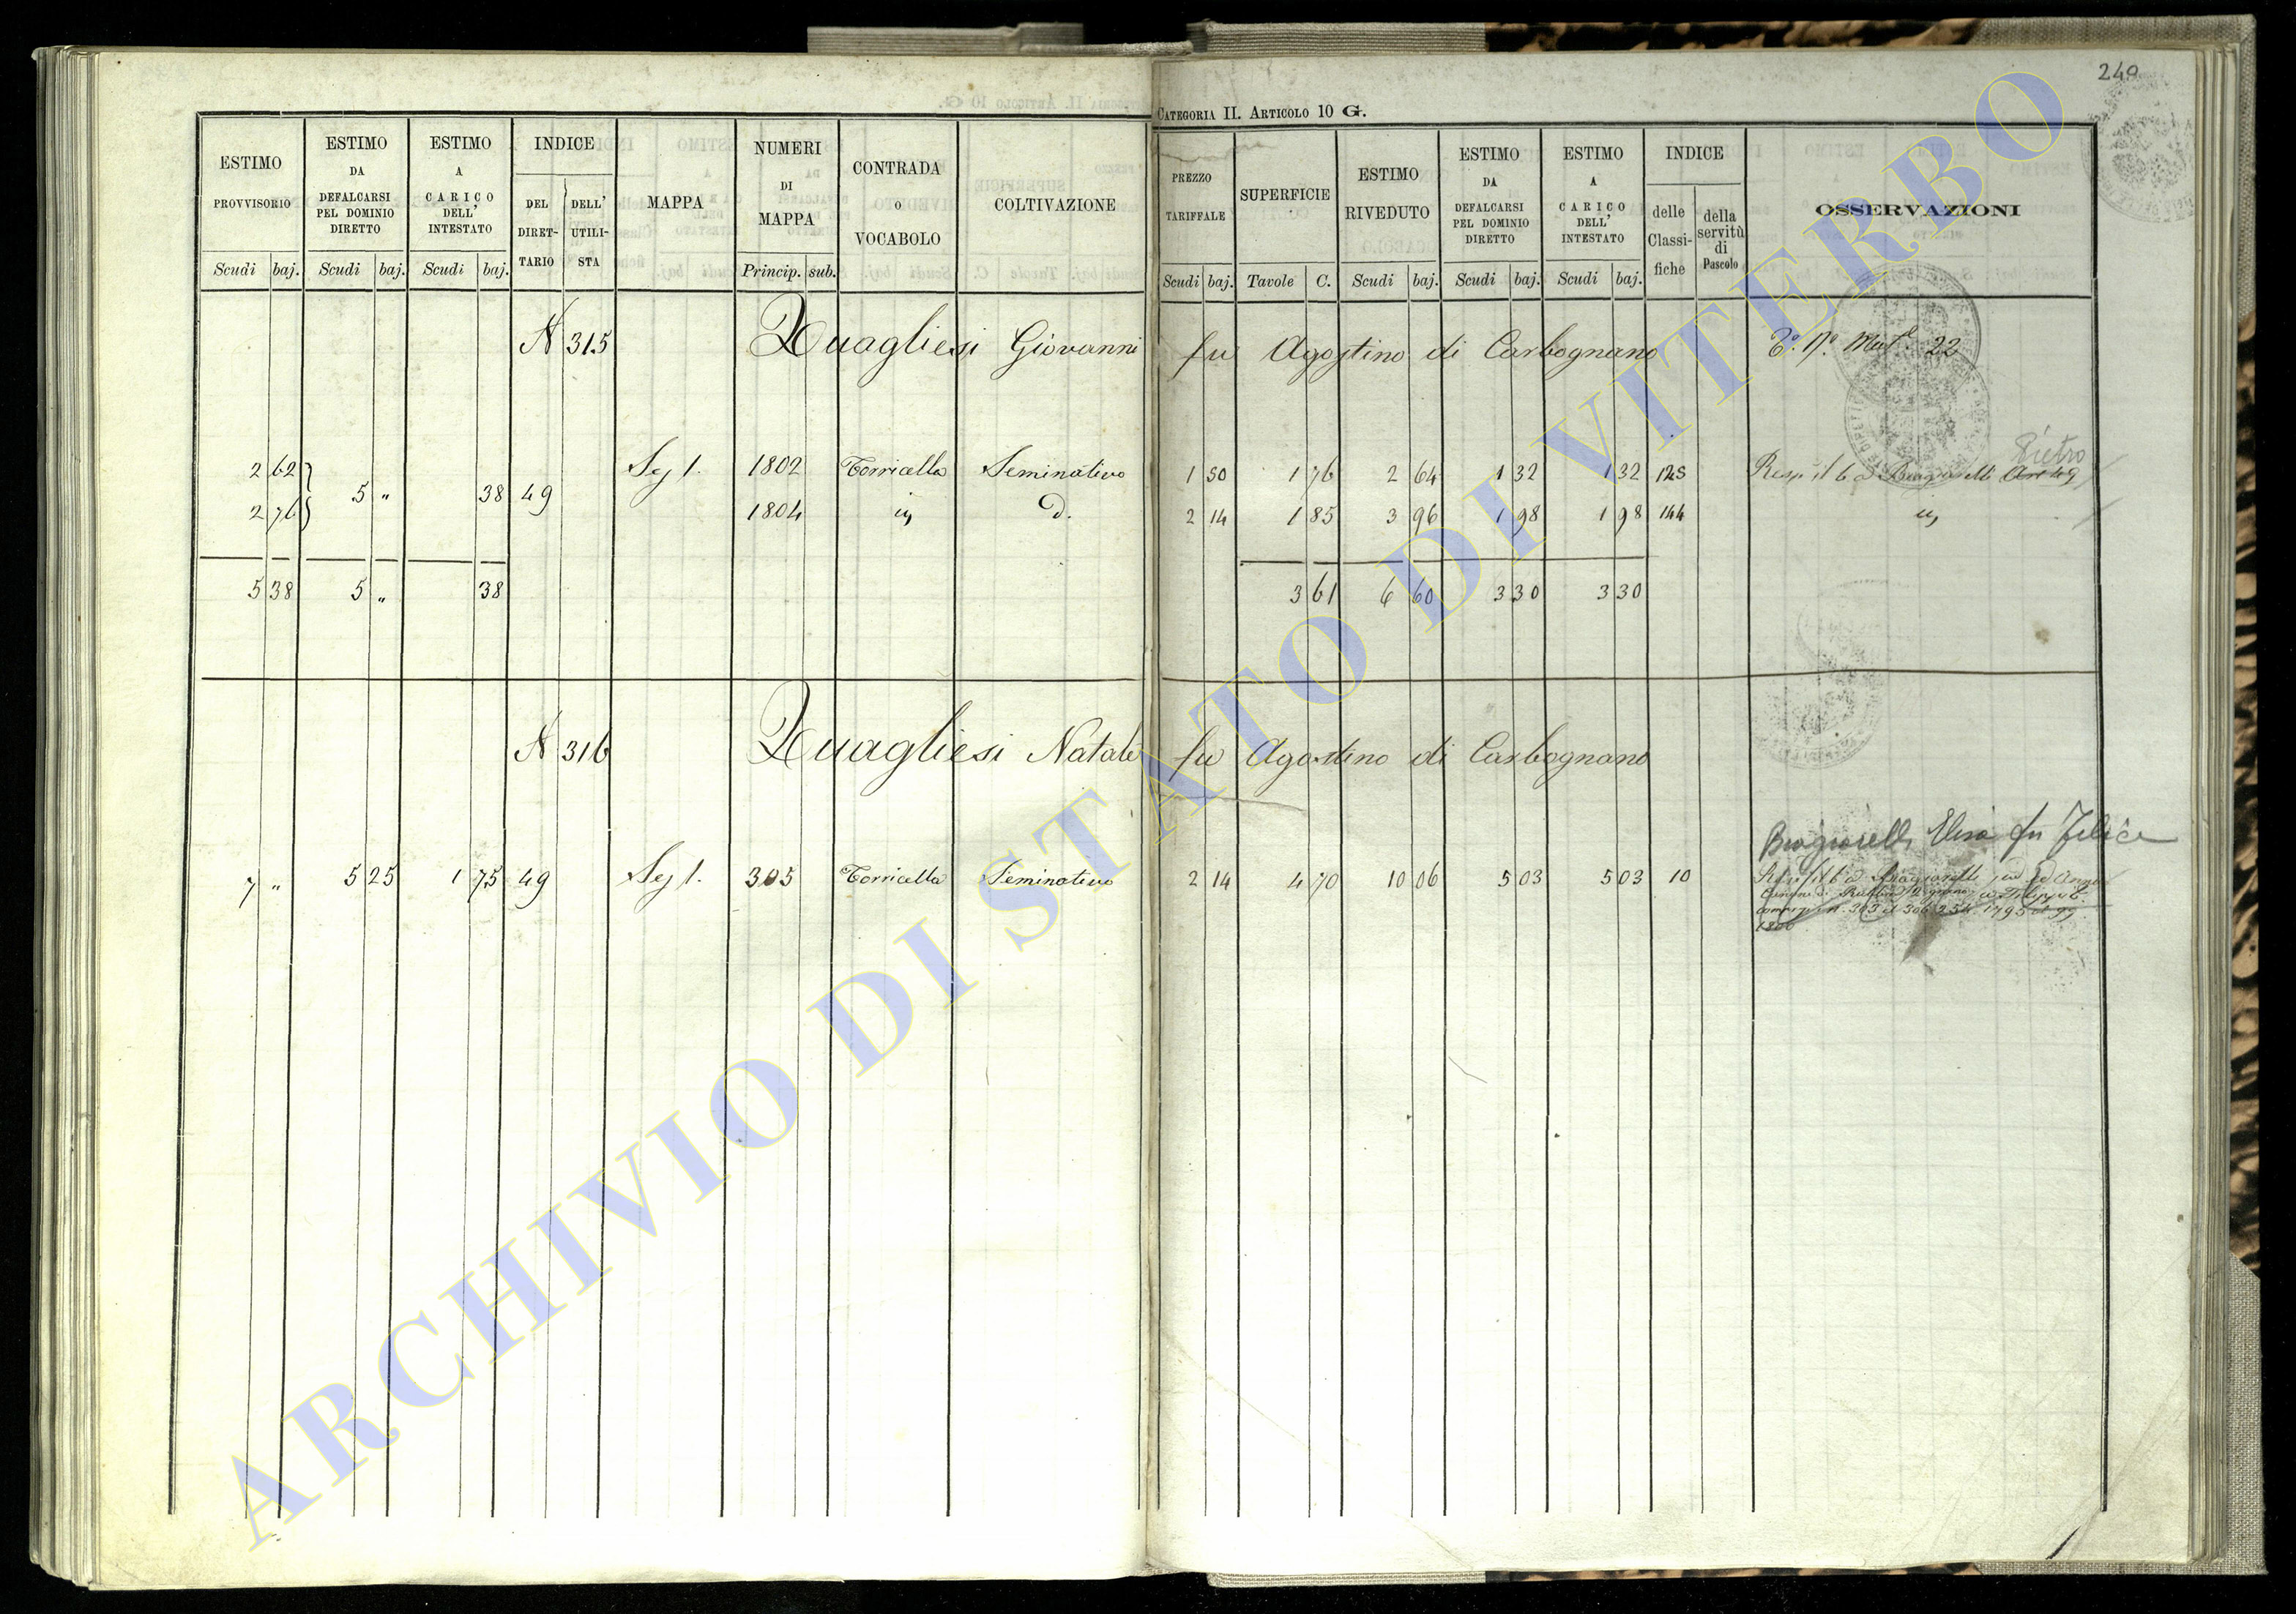 240
CATEGORIA II. ARTICOLO 10 G.
ESTIMO PROVVISORIO Scudi baj.
ESTIMO DA DEFALCARSI PEL DOMINIO DIRETTO Scudi baj.
ESTIMO A CARICO DELL' INTESTATO Scudi baj.
INDICE DEL DIRET-TARIO DELL' UTILI-STA
MAPPA
NUMERI DI MAPPA Princip. sub.
CONTRADA O VOCABOLO
COLTIVAZIONE
PREZZO TARIFFALE Scudi baj.
SUPERFICIE Tavole C.
ESTIMO RIVEDUTO Scudi baj.
ESTIMO DA DEFALCARSI PEL DOMINIO DIRETTO Scudi baj.
ESTIMO A CARICO DELL' INTESTATO Scudi baj.
INDICE delle Classi-fiche della servitù di Pascolo
OSSERVAZIONI
N 315 Quagliesi Giovanni fu Agostino di Carbognano 22
Pietro
2 62 5 " 38 49 Sez 1. 1802 Torricella Seminativo 1 50 1 76 2 64 1 32 1 32 125
2 76 1804 d. 2 14 1 85 3 96 1 98 1 98 144
5 38 5 " 38 3 61 6 60 3 30 3 30
N 316 Quagliesi Natale fu Agostino di Carbognano
Elisa fu Felice
7 " 5 25 1 75 49 Sez 1. 305 Torricella Seminativo 2 14 4 70 10 06 5 03 5 03 10
ARCHIVIO DI STATO DI VITERBO